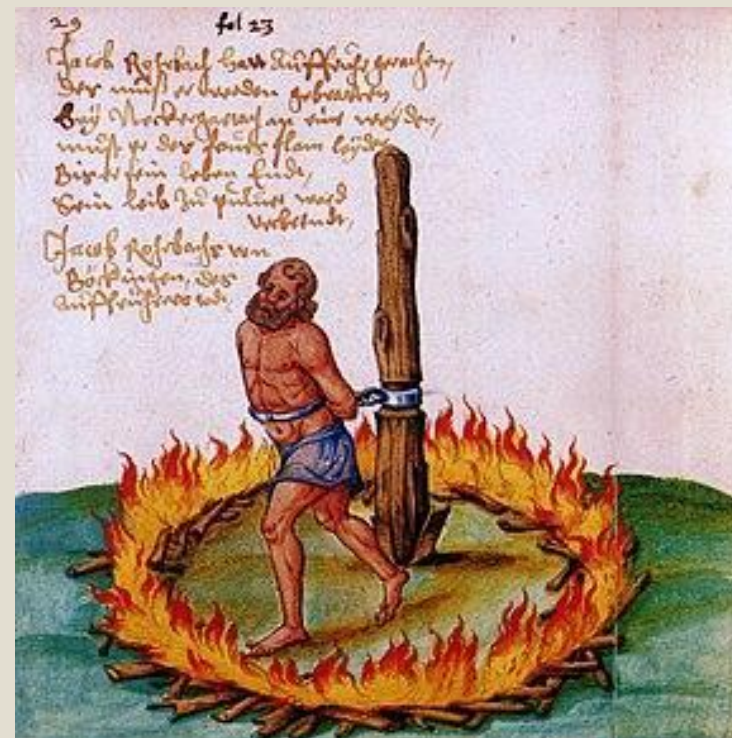 29 fol 23
Jacob Rohrbach hatt Auffruhr
der must er werden gebratten
Bey Neckergartach an einr weyden,
must er des feuers flam leyden
Bis er sein leben endt,
Sein leib zu puluer ward
verbrendt,
Jacob Rohrbachs von
Böckingen, des
auffrhürers todt.